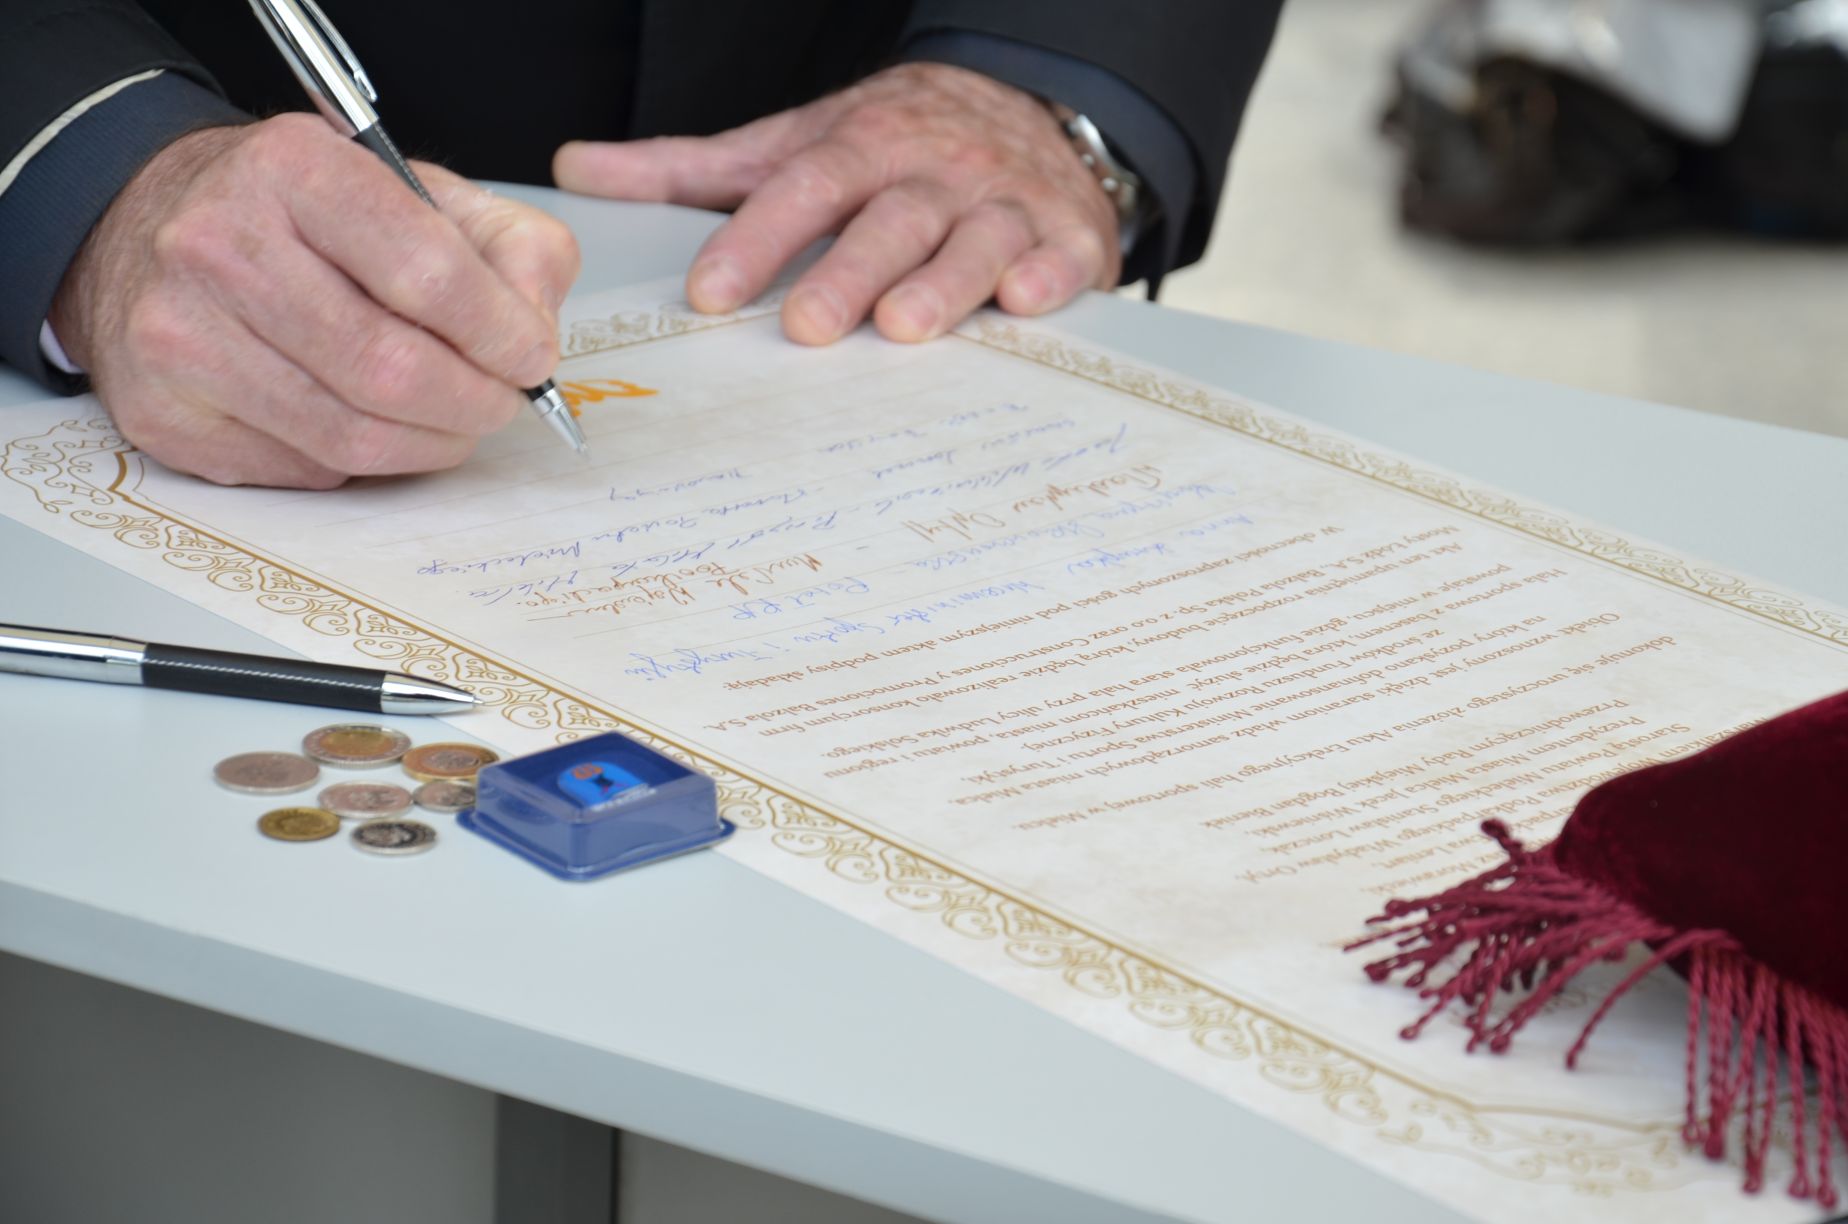 Morawiecki,
Ewa Leniart,
Województwa Podkarpackiego Władysław Ortyl,
Starostą Powiatu Mieleckiego Stanisław Lonczak,
Prezydentem Miasta Mielca Jacek Wiśniewski,
Przewodniczącym Rady Miejskiej Bogdan Bieniek
dokonuje się uroczystego złożenia Aktu Erekcyjnego hali sportowej, w Mielcu.
Obiekt wznoszony jest dzięki staraniom władz samorządowych miasta Mielca,
na który pozyskano dofinansowanie Ministerstwa Sportu i Turystyki,
ze środków Funduszu Rozwoju Kultury Fizycznej.
Hala sportowa z basenem, która będzie służyć mieszkańcom miasta, powiatu i regionu
powstaje w miejscu, gdzie funkcjonowała stara hala przy ulicy Ludwika Solskiego.
Akt ten upamiętnia rozpoczęcie budowy, którą będzie realizowało konsorcjum firm
Mosty Łódź S.A., Balzola Polska Sp. z o.o oraz Construcciones y Promociones Balzola S.A.
W obecności zaproszonych gości pod niniejszym aktem podpisy składają:
Anna Krupka Wiceminister Sportu i Turystyki
Krystyna Skowrońska Poseł RP
Władysław Ortyl -
Jacek Wiśniewski - Prezydent Miasta Mielca
Starosta Powiatu Mieleckiego